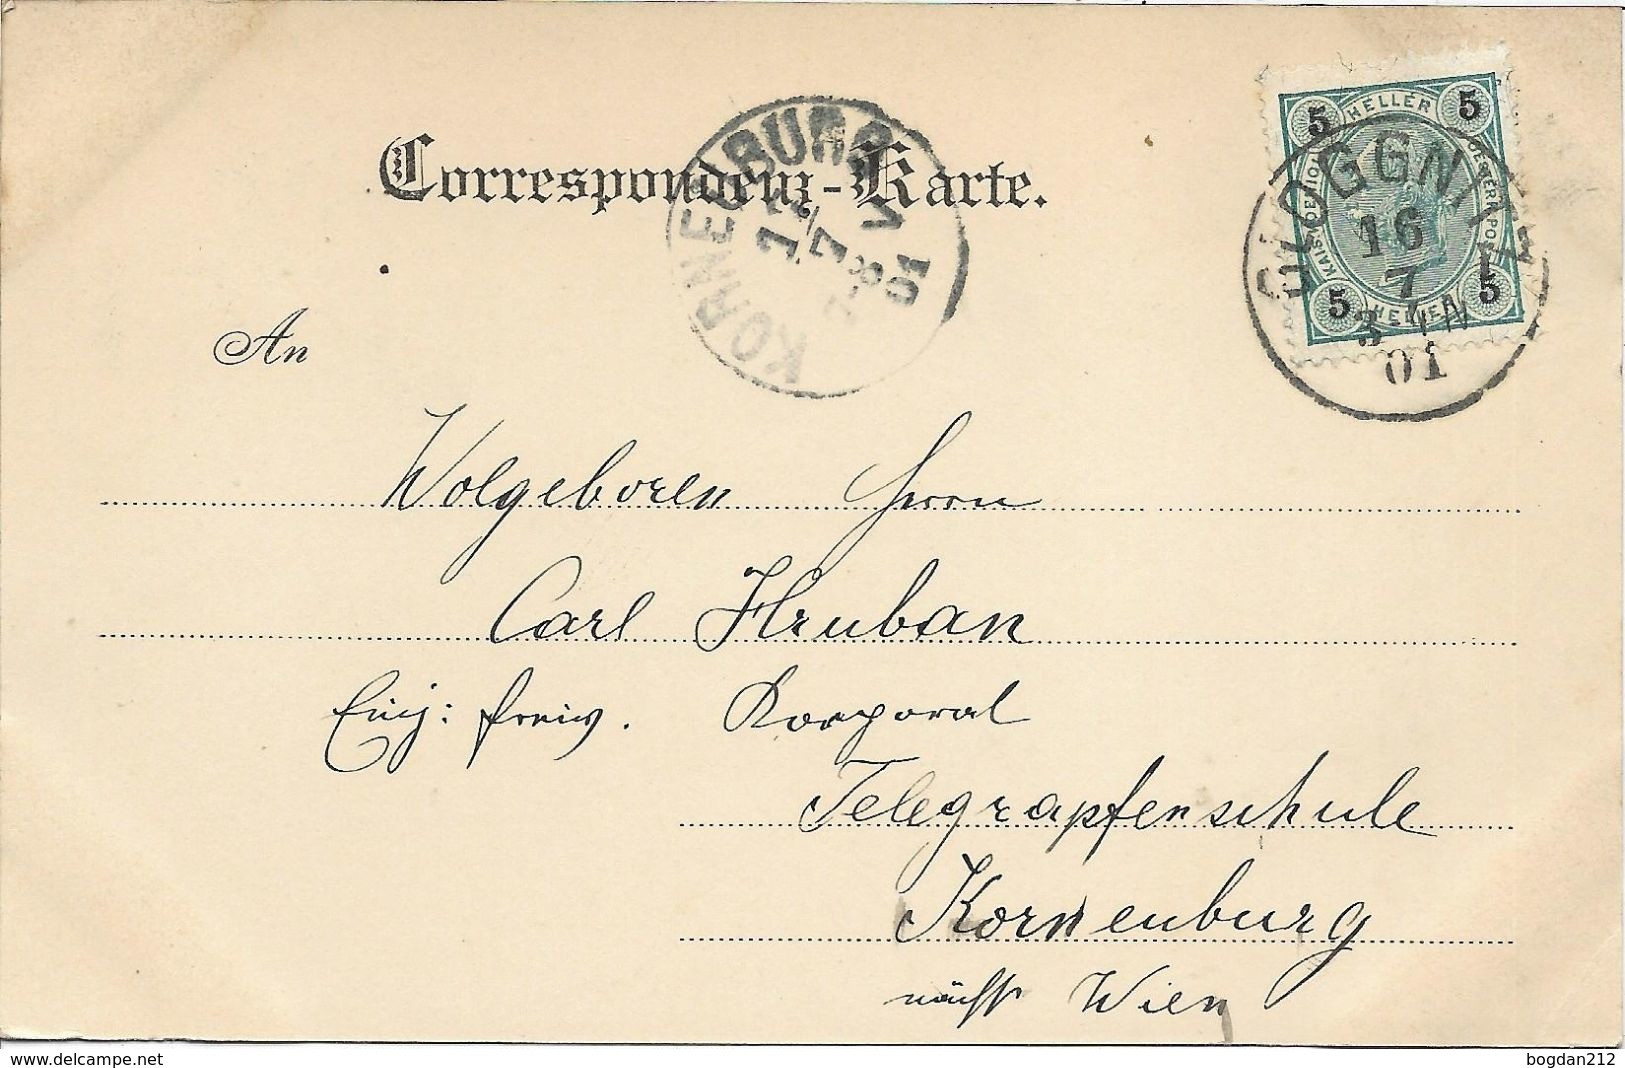 Correspondenz-Karte.
KORNEUBURG
17
7
7-8 V
01
5 HELLER 5
KAIS. KOENIGL. OESTERR. POST
5 HELLER 5
GLOGGNITZ
16
7
3 N
01
An
Wolgeboren Herrn
Carl Hruban
Einj: freiw. Korporal
Telegrapfenschule
Korneuburg
nächst Wien
delcampe.net
bogdan212